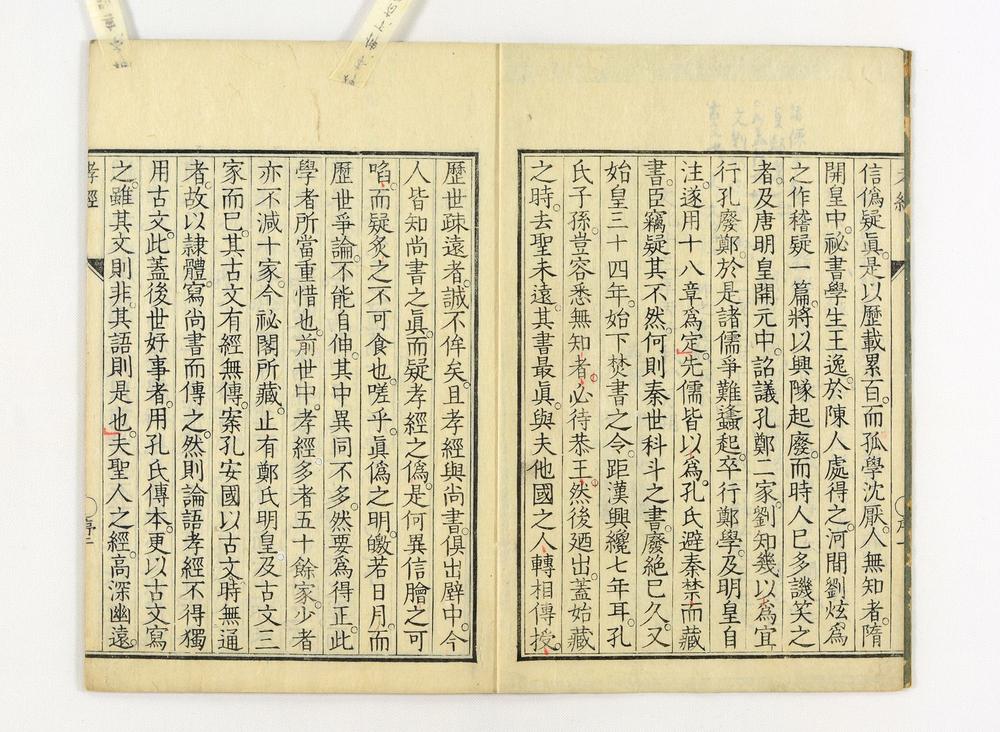 信僞疑眞。是以歷載累百。而孤學沈厭。人無知者。隋
開皇中。祕書學生王逸。於陳人處得之。河間劉炫爲
之作稽疑一篇。將以興隊起廢。而時人已多譏笑之
者。及唐明皇開元中。詔議孔鄭二家。劉知幾以爲宜
行孔廢鄭。於是諸儒爭難蠭起。卒行鄭學。及明皇自
注。遂用十八章爲定。先儒皆以爲孔氏避秦禁而藏
書。臣竊疑其不然。何則秦世科斗之書。廢絕已久。又
始皇三十四年。始下焚書之令。距漢興纔七年耳。孔
氏子孫。豈容悉無知者。必待恭王。然後廼出。蓋始藏
之時。去聖未遠。其書最眞。與夫他國之人轉相傳授。
歷世疎遠者。誠不侔矣。且孝經與尚書。俱出壁中。今
人皆知尚書之眞。而疑孝經之僞。是何異信膾之可
啗。而疑炙之不可食也。嗟乎眞僞之明。皦若日月。而
歷世爭論。不能自伸。其中異同不多。然要爲得正。此
學者所當重惜也。前世中。孝經多者五十餘家。少者
亦不減十家。今祕閣所藏。止有鄭氏明皇及古文三
家而已。其古文有經無傳。案孔安國以古文時無通
者。故以隷體寫尚書而傳之。然則論語孝經不得獨
用古文。此蓋後世好事者。用孔氏傳本。更以古文寫
之。雖其文則非。其語則是也。夫聖人之經。高深幽遠。
孝經
序二